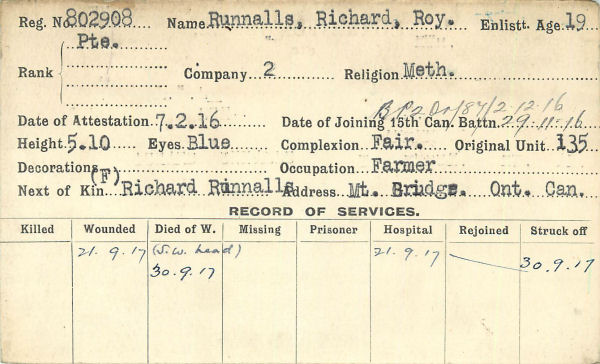 Reg. No. 802908 Name Runnalls, Richard, Roy. Enlistt. Age 19
Pte.
Rank Company 2 Religion Meth.
B P2 Or/87/2-12-16
Date of Attestation 7.2.16 Date of Joining 15th Can. Battn. 29-11-16
Height 5.10 Eyes Blue Complexion Fair. Original Unit 135
Decorations Occupation Farmer
(F)
Next of Kin Richard Runnalls Address Mt. Brudge. Ont. Can.
RECORD OF SERVICES.
Killed Wounded Died of W. Missing Prisoner Hospital Rejoined Struck off
21.9.17 (S.W. head) 21.9.17
30.9.17 30.9.17